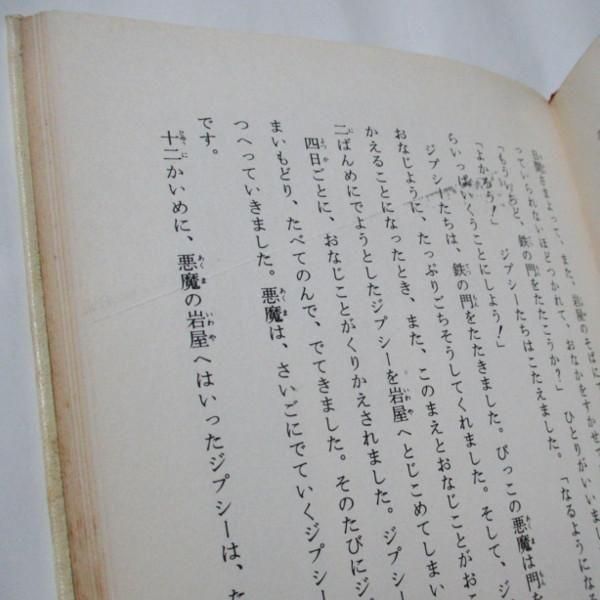 日間さまよって、また、岩屋のそばにで
っていられないほどつかれて、おなかをすかせて
「もういちど、鉄の門をたたこうか?」 ひとりがいいまし
「よかろう!」 ジプシーたちはこたえました。「なるようになる
ちいっぱいいくうことにしよう!」
ジプシーたちは、鉄の門をたたきました。びっこの悪魔は門を
おなじように、たっぷりごちそうしてくれました。そして、ジ
かえることになったとき、また、このまえとおなじことがお
二ばんめにでようとしたジプシーを岩屋へとじこめてしまい
四日ごとに、おなじことがくりかえされました。ジプシー
まいもどり、たべてのんで、でてきました。そのたびにジ
つへっていきました。悪魔は、さいごにでていくジプシ
です。
十二かいめに、悪魔の岩屋へはいったジプシーは、た